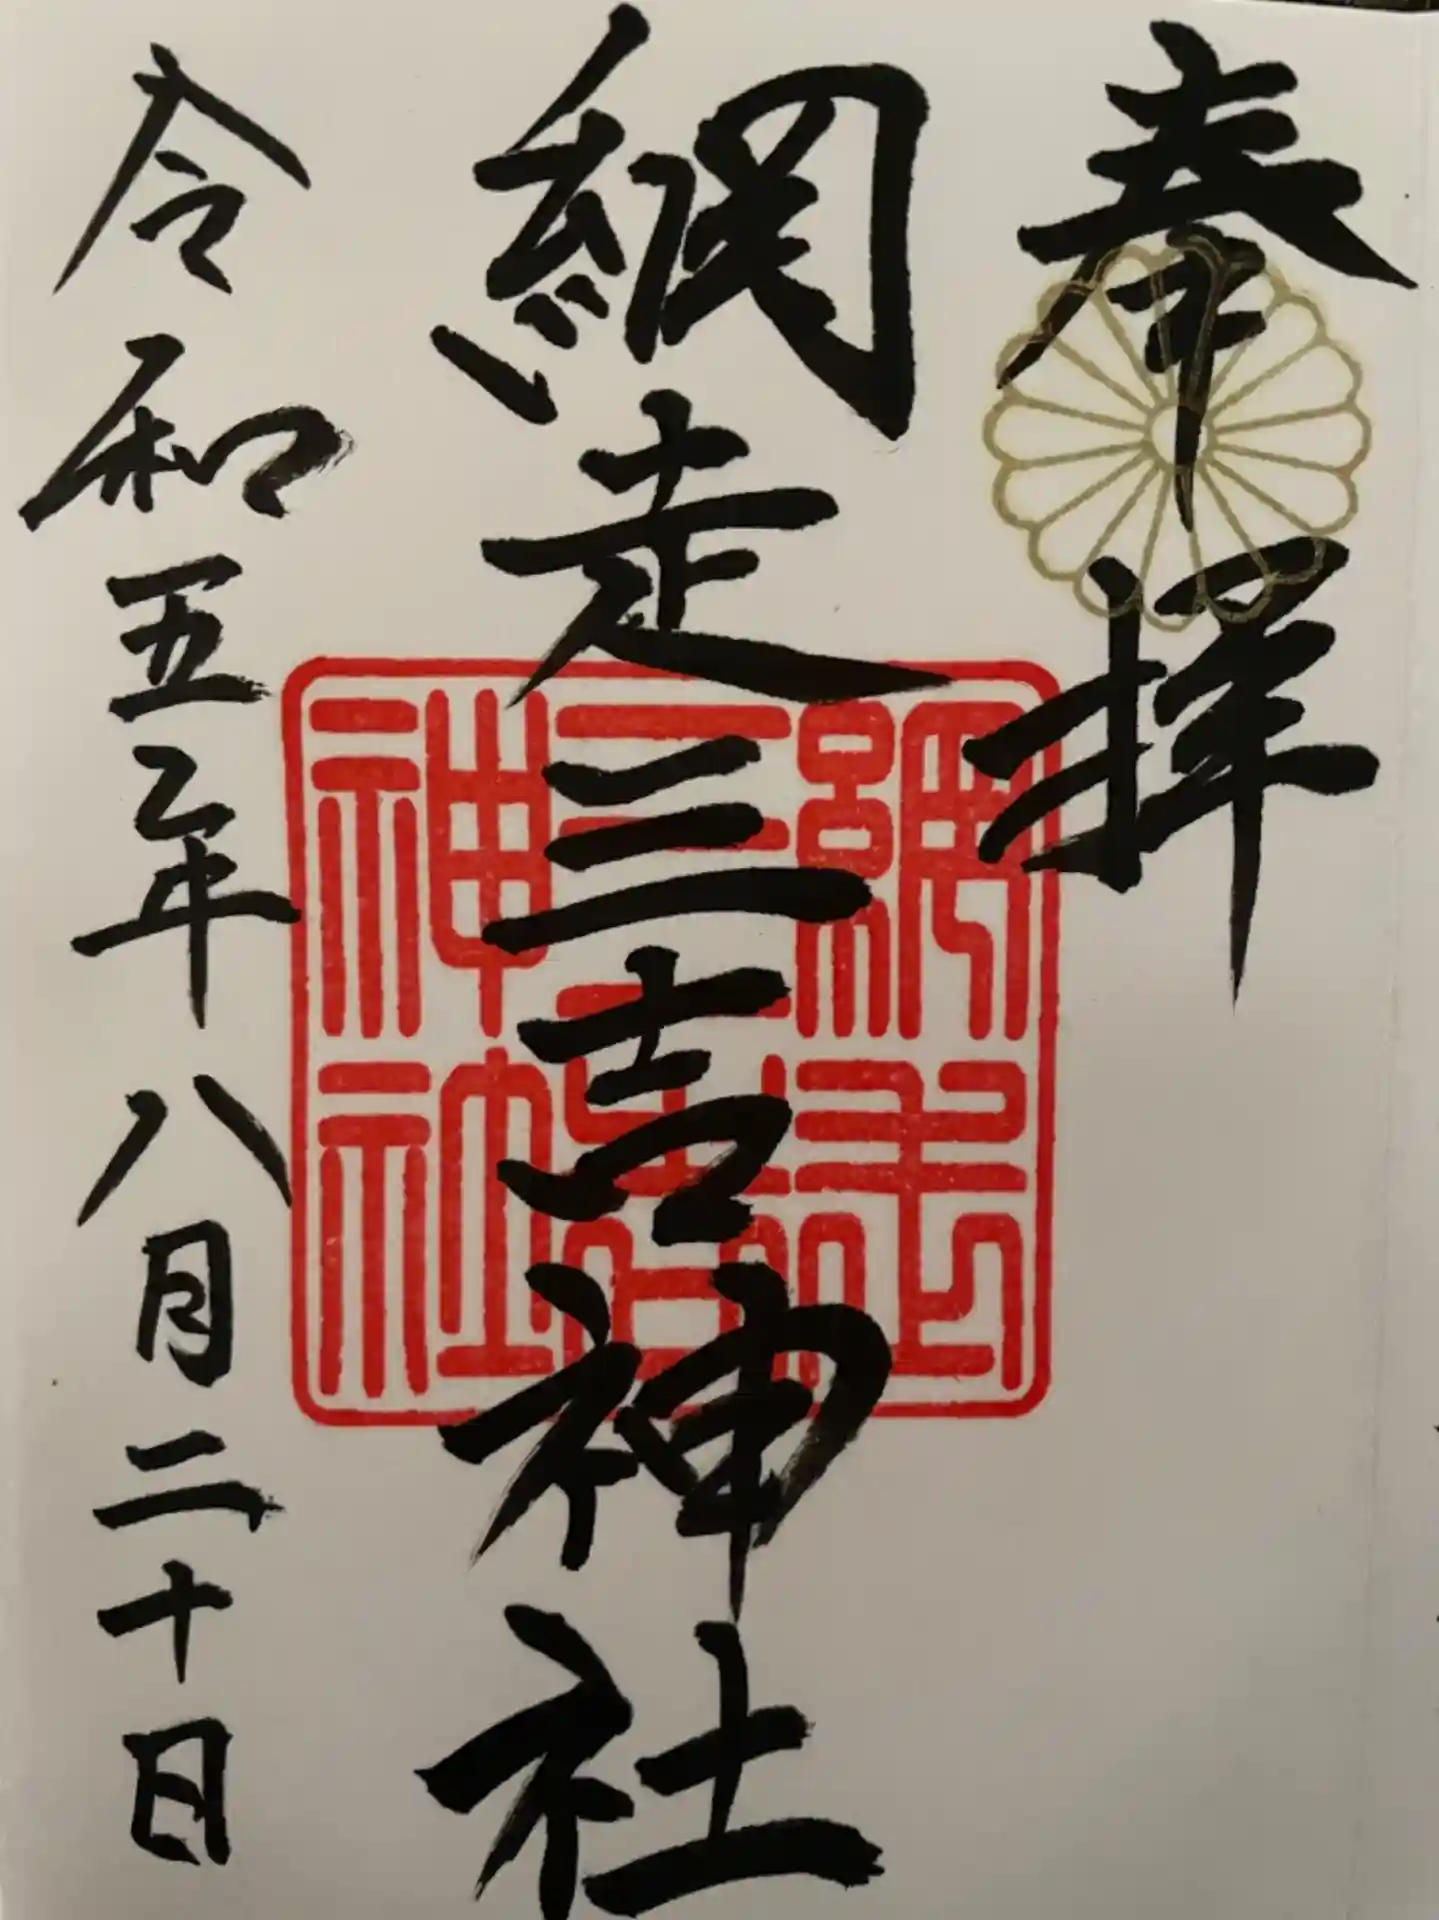 奉拝
網走三吉神社
網走三吉神社
令和五年八月二十日